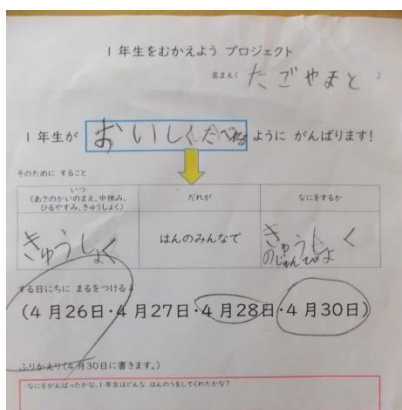 1年生をむかえよう プロジェクト
名まえ( たごやまと )
1年生が おいしくたべれる ように がんばります!
そのために すること
いつ
(あさのかいのまえ、中休み、
ひるやすみ、きゅうしょく)
だれが
なにをするか
きゅうしょく
はんのみんなで
きゅうしょく
のじゅんびょ
する日にちに まるをつける
(4月26日・4月27日・4月28日・4月30日)
ふりかえり(4月30日に書きます。)
・なにをがんばったかな、1年生はどんな はんのうをしてくれたかな?